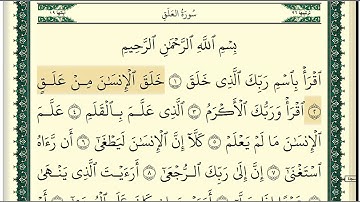 سُورَةُ العَلَقِ
بِسْمِ اللَّهِ الرَّحْمَٰنِ الرَّحِيمِ
اقْرَأْ بِاسْمِ رَبِّكَ الَّذِي خَلَقَ ١ خَلَقَ الْإِنسَانَ مِنْ عَلَقٍ
٢ اقْرَأْ وَرَبُّكَ الْأَكْرَمُ ٣ الَّذِي عَلَّمَ بِالْقَلَمِ ٤ عَلَّمَ
الْإِنسَانَ مَا لَمْ يَعْلَمْ ٥ كَلَّا إِنَّ الْإِنسَانَ لَيَطْغَىٰ ٦ أَن رَّآهُ
اسْتَغْنَىٰ ٧ إِنَّ إِلَىٰ رَبِّكَ الرُّجْعَىٰ ٨ أَرَأَيْتَ الَّذِي يَنْهَىٰ